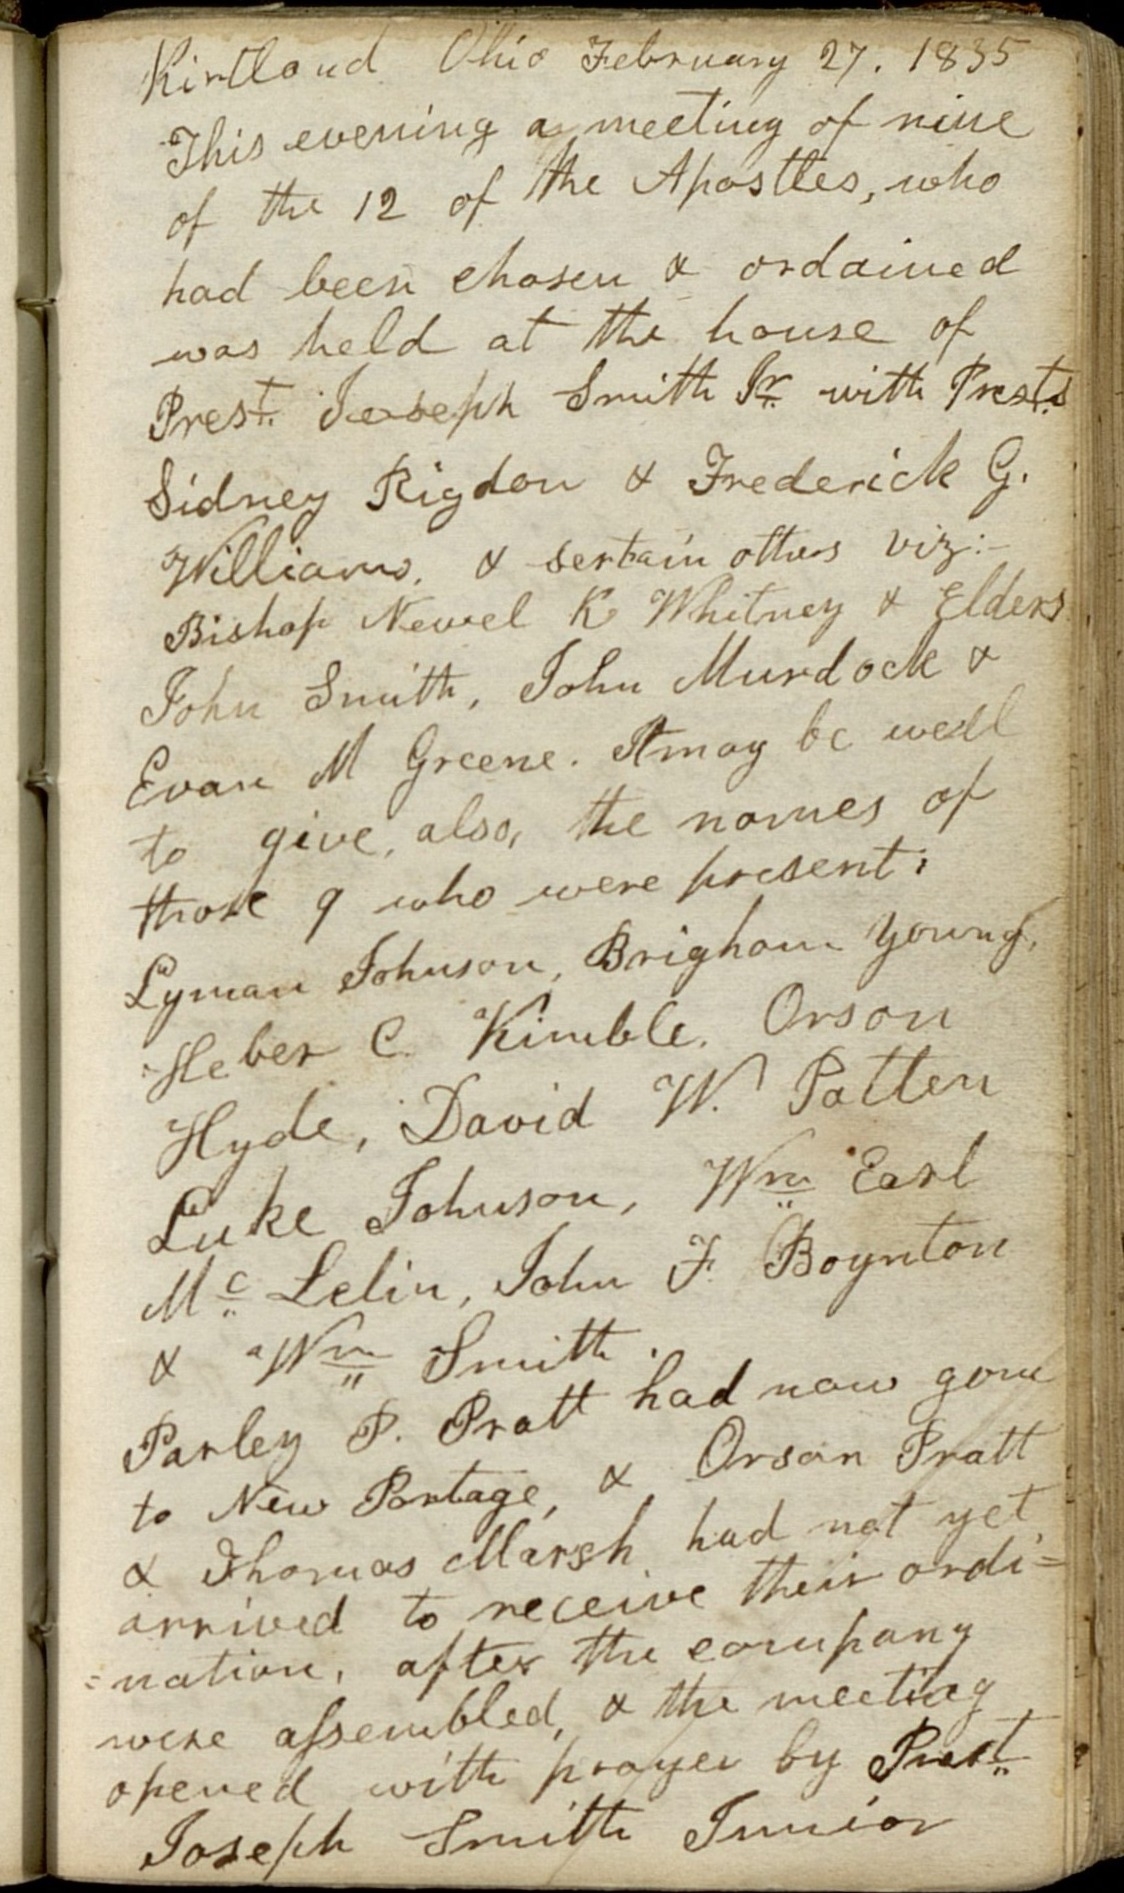 Kirtland Ohio February 27. 1835
This evening a meeting of nine
of the 12 of the Apostles, who
had been chosen & ordained
was held at the house of
Prest. Joseph Smith Jr. with Prests.
Sidney Rigdon & Frederick G.
Williams. & sertain others viz:-
Bishop Newel K Whitney & Elders
John Smith, John Murdock &
Evan M Greene. It may be well
to give, also, the names of
those 9 who were present:
Lyman Johnson, Brigham Young,
Heber C. Kimble. Orson
Hyde, David W. Patten
Luke Johnson, Wm Earl
Mc Lelin, John F. Boynton
& Wm Smith.
Parley P. Pratt had now gone
to New Portage, & Orson Pratt
& Thomas Marsh had not yet
arrived to receive their ordi=
=nation, after the company
were assembled, & the meeting
opened with prayer by Prest.
Joseph Smith Junior